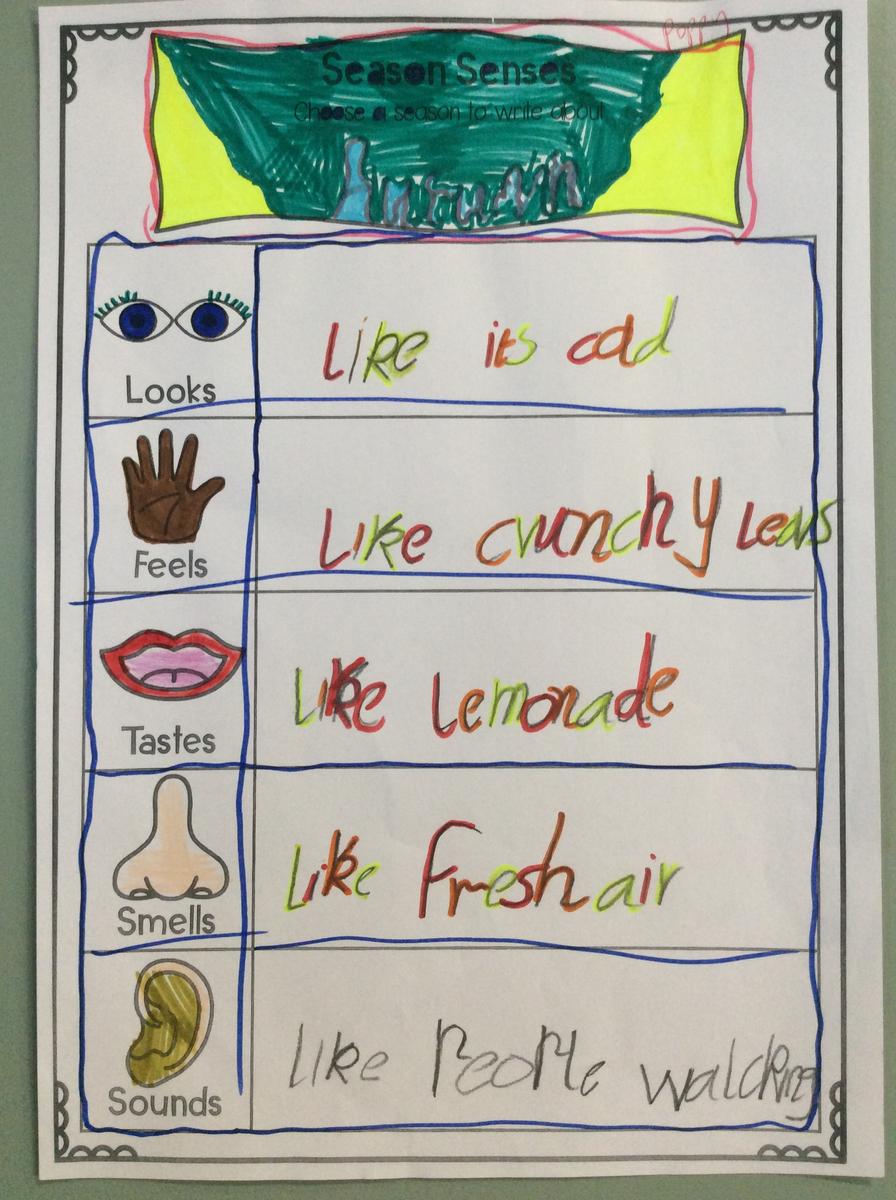 Poppy
Season Senses
Choose a season to write about
Looks
Like its cold
Feels
Like crunchy leavs
Tastes
Like Lemonade
Smells
Like Fresh air
Sounds
like People walcking